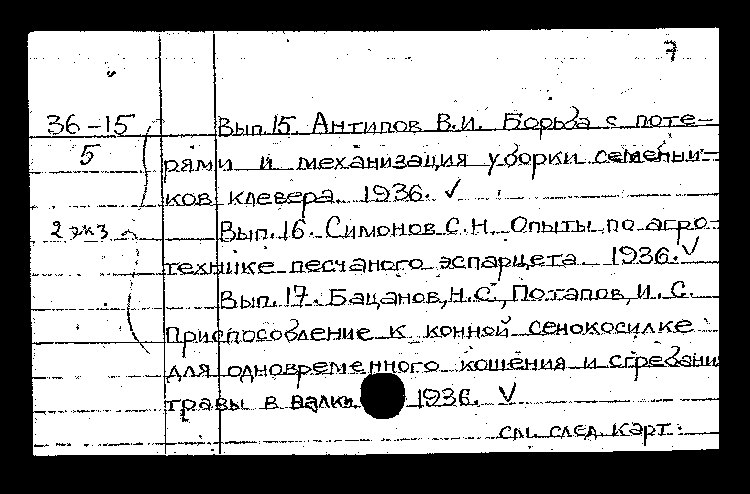 7
36-15 Вып. 15. Антипов В.И. Борьба с поте-
5 рями и механизация уборки семенни-
ков клевера. 1936. ✓
2 экз Вып. 16. Симонов С.Н. Опыты по агро-
технике песчаного эспарцета. 1936. ✓
Вып. 17. Бацанов, Н.С., Потапов, И. С.
Приспособление к конной сенокосилке
для одновременного кошения и сгребани
травы в валки 1936. ✓
см. след. карт.